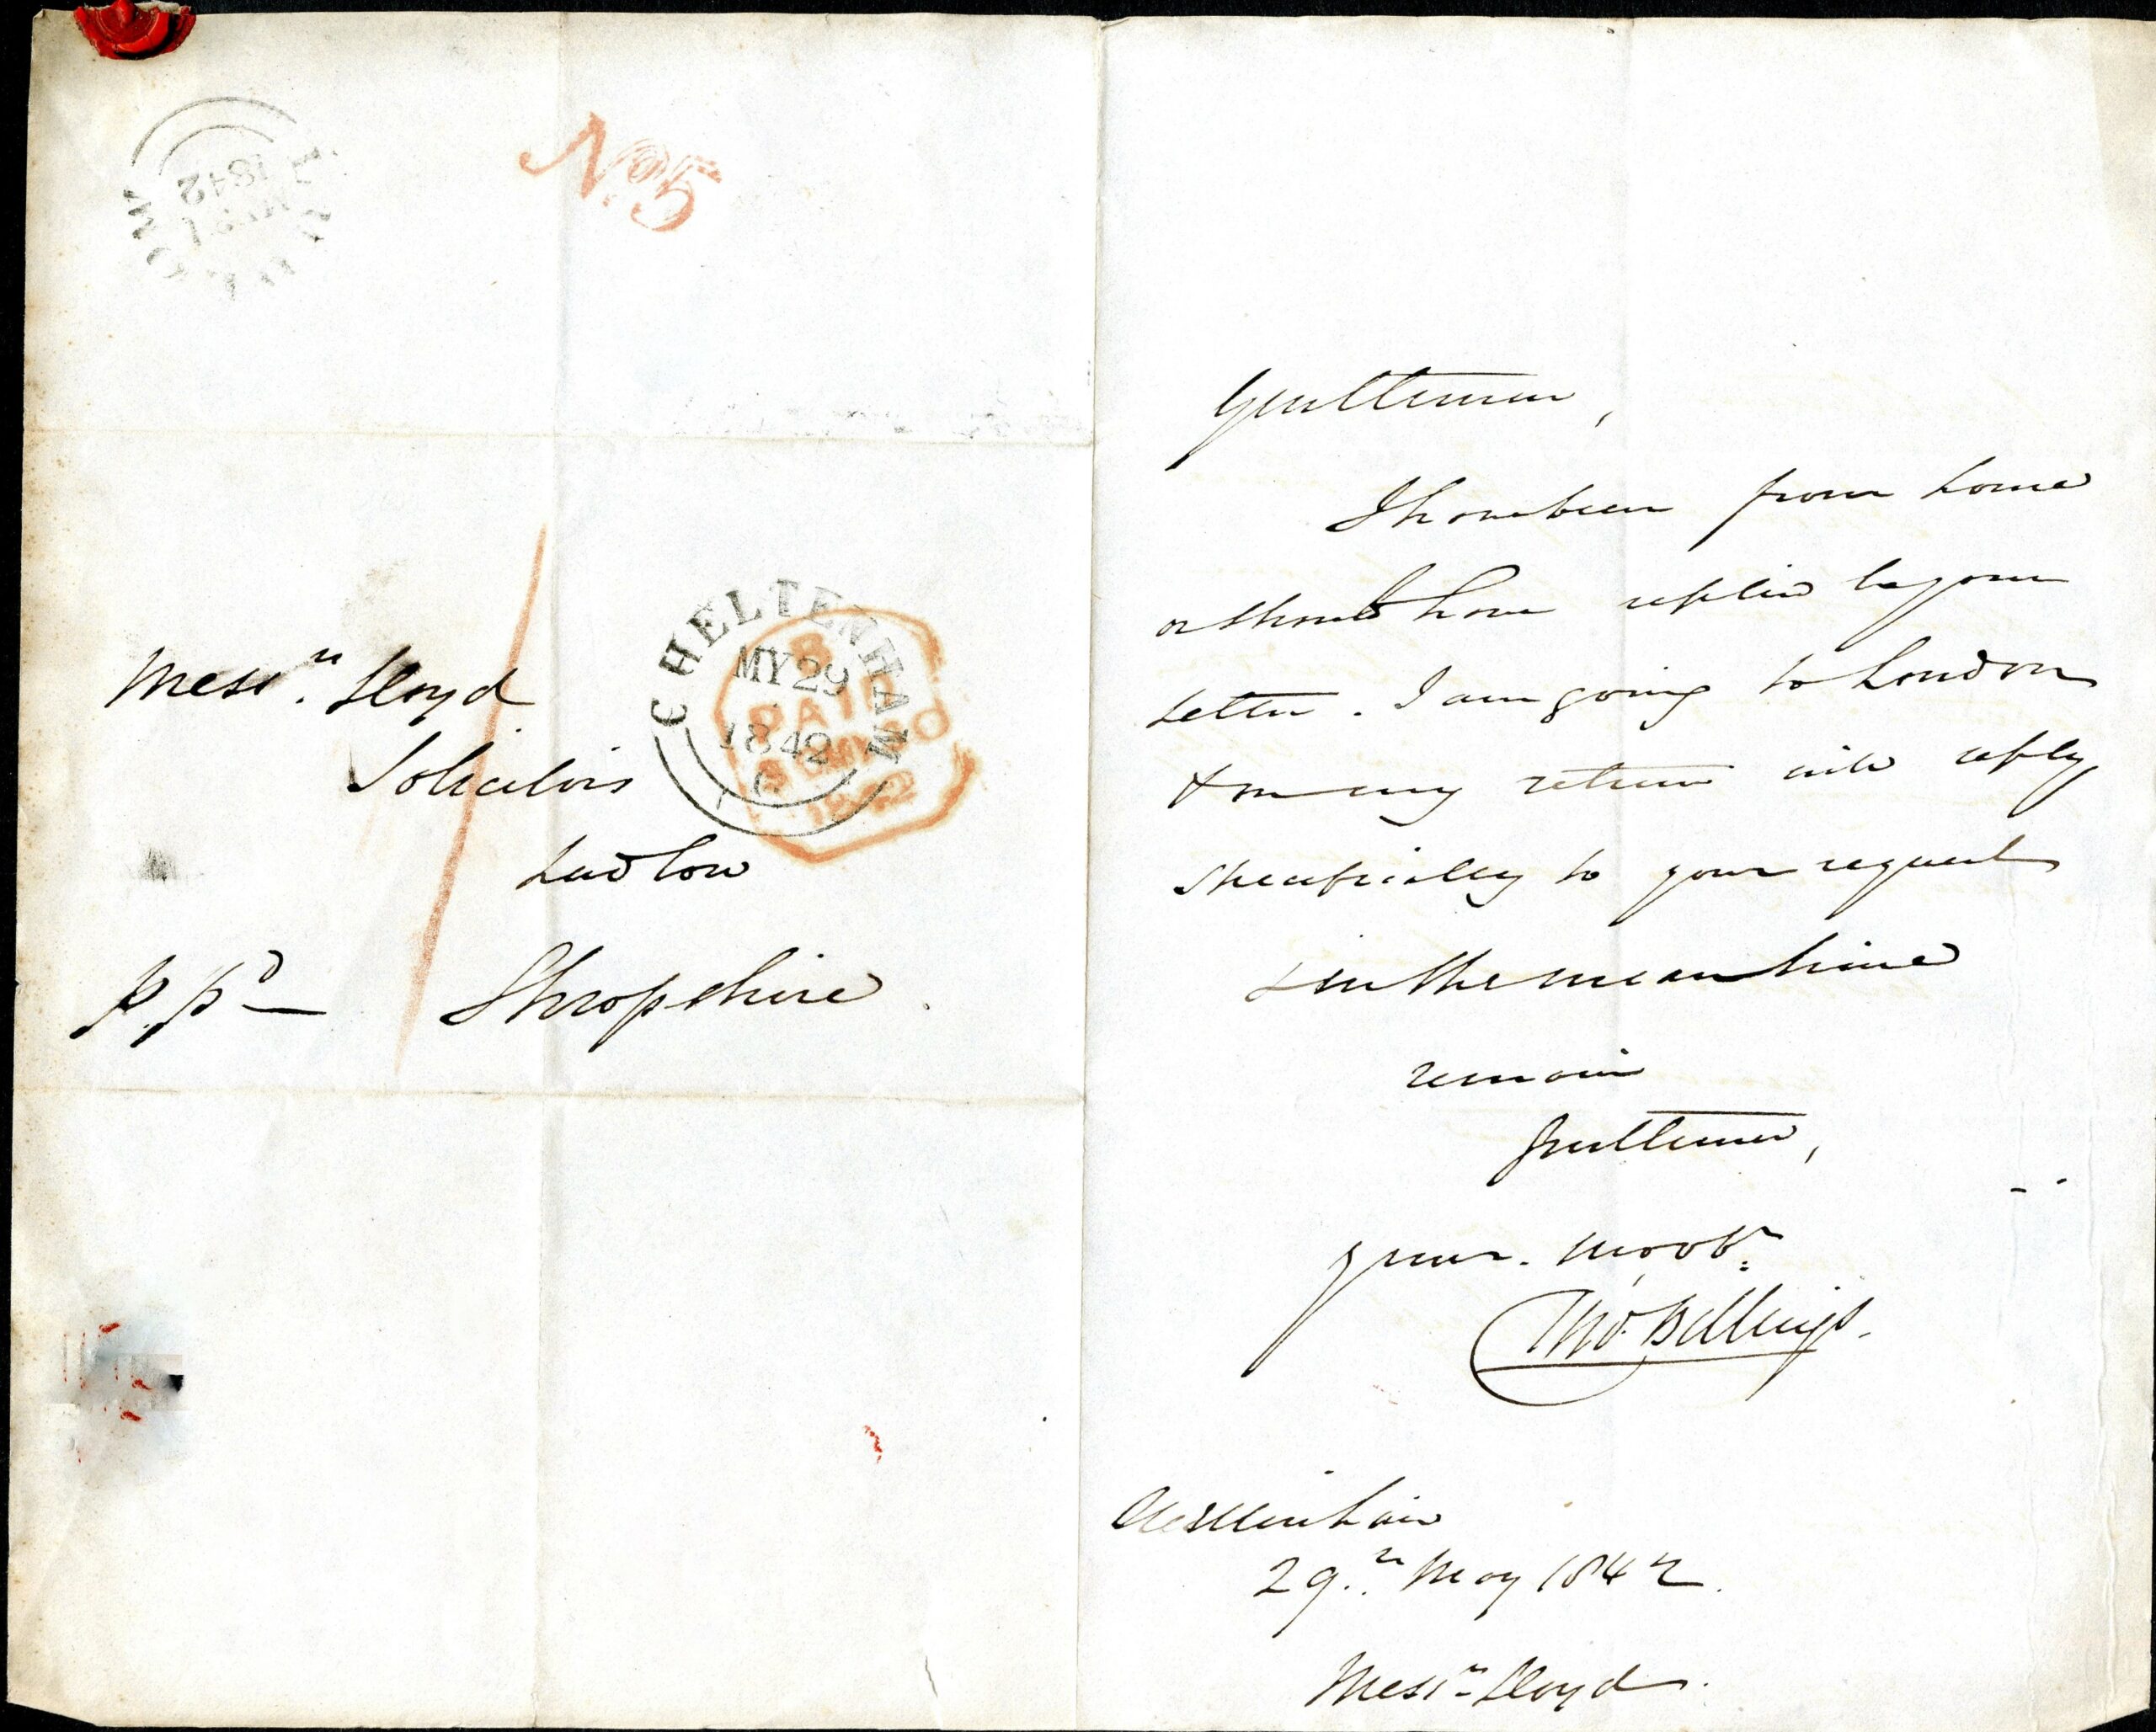 LUDLOW
MY 31
1842
No. 5
CHELTENHAM
MY 29
1842
C
B
PAID
30 MY 30
1842
Messrs. Lloyd
Solicitors
Ludlow
P. Pd — Shropshire.
Gentlemen,
I have been from home
or should have replied to your
letter. I am going to London
& on my return will reply
specifically to your request
& in the mean time
remain
Gentlemen,
your. mo. obt.
Tho. Billings.
Cheltenham
29th May 1842.
Messrs Lloyd.